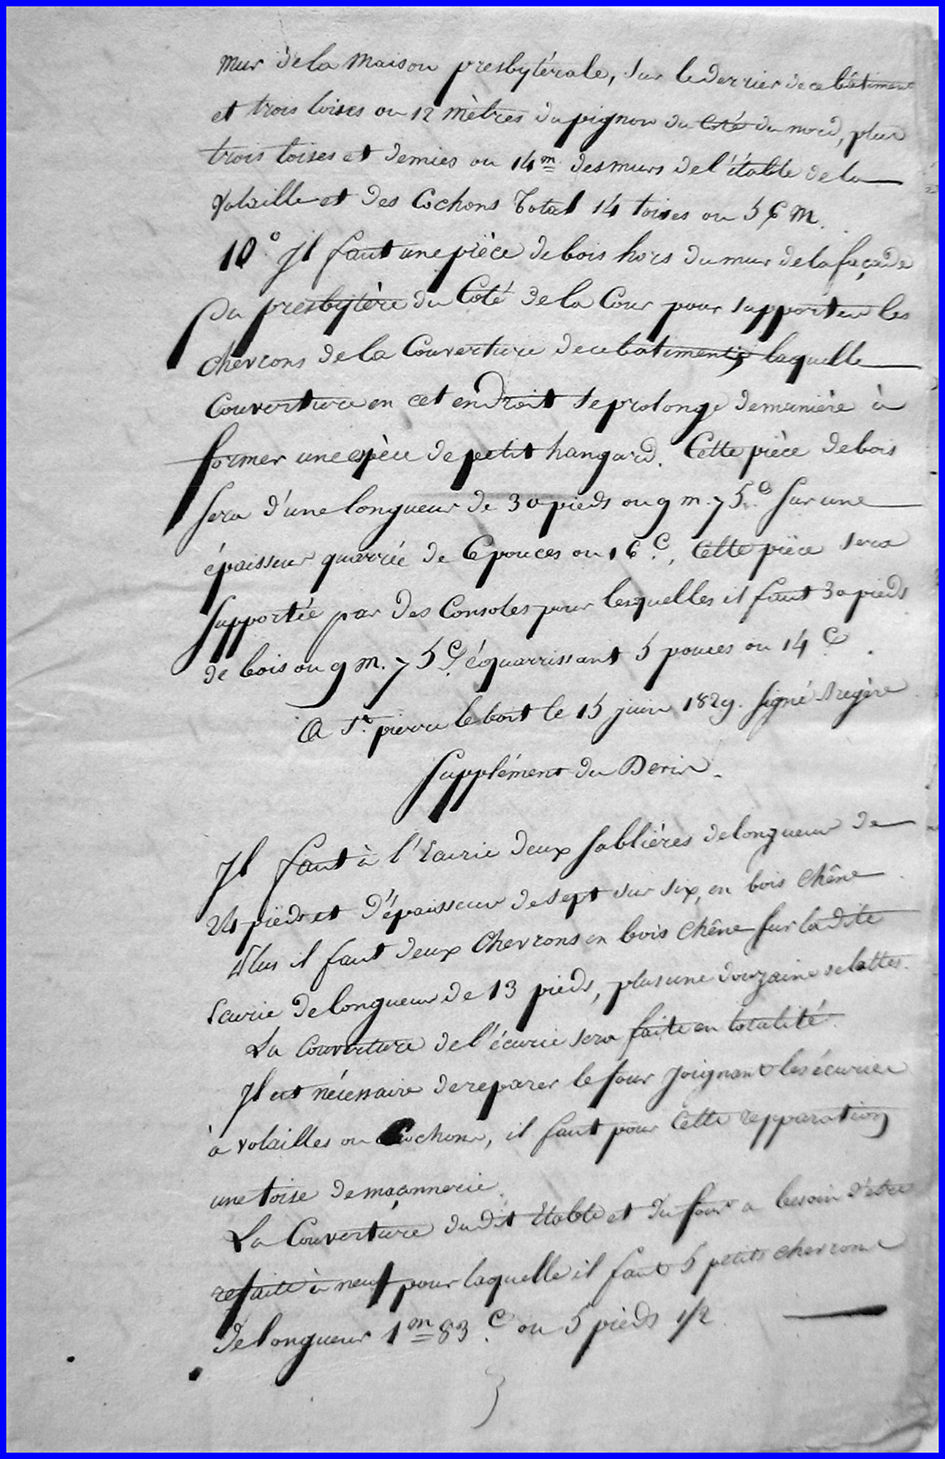 mur de la maison presbytérale, sur le derrier de ce bâtiment
et trois toises ou 12 mètres du pignon du coté du nord, plus
trois toises et demies ou 14 m des murs de l'étable de la
volaille et des Cochons Total 14 toises ou 56 m.
10° Il faut une pièce de bois hors du mur de la façade
Du presbytère du Coté de la Cour pour supporter les
chevrons de la Couverture de ce batiment, laquelle
Couverture en cet endroit se prolonge de manière à
former une espèce de petit hangard. Cette pièce de bois
sera d'une longueur de 30 pieds ou 9 m. 75 c. sur une
épaisseur quarrée de 6 pouces ou 16 C., Cette pièce sera
supportée par des Consoles pour lesquelles il faut 30 pieds
de bois ou 9 m. 75 C. équarrissant 5 pouces ou 14 C.
A St. pierre le bost le 15 juin 1829. Signé
Supplément du Devis.
Il faut à l'Ecurie deux sablières de longueur de
24 pieds et d'épaisseur de sept sur six, en bois chêne
Plus il faut deux Chevrons en bois chêne sur la dite
Ecurie de longueur de 13 pieds, plus une douzaine de lattes.
La Couverture de l'écurie sera faite en totalité.
Il est nécessaire de reparer le four joignant les écuries
à volailles ou Cochons, il faut pour Cette repparation
une toise de maçonnerie.
La Couverture du dit Etable et du four a besoin d'etre
refaite à neuf pour laquelle il faut 5 petits chevrons
de longueur 1 m 83 C. ou 5 pieds 1/2